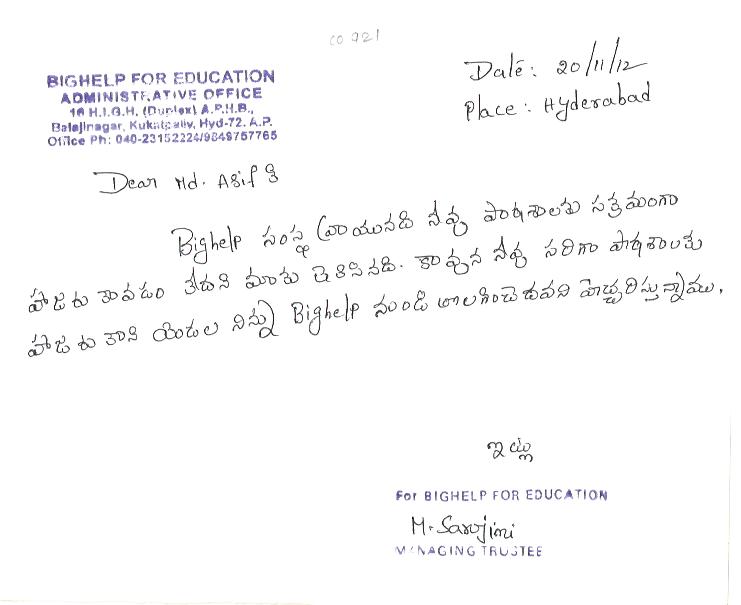 CO 921
BIGHELP FOR EDUCATION
ADMINISTRATIVE OFFICE
16 H.I.G.H. (Duplex) A.P.H.B.,
Balajinagar, Kukatpally, Hyd-72. A.P.
Office Ph: 040-23152224/9849757765
Date: 20/11/12
Place: Hyderabad
Dear Md. Asif కి
Bighelp సంస్థ వ్రాయునది నీవు పాఠశాలకు సక్రమంగా
హాజరు కావడం లేదని మాకు తెలిసినది. కావున నీవు సరిగా పాఠశాలకు
హాజరు కాని యెడల నిన్ను Bighelp నుండి తొలగించెదమని హెచ్చరిస్తున్నాము.
ఇట్లు
For BIGHELP FOR EDUCATION
M. Sarojini
MANAGING TRUSTEE